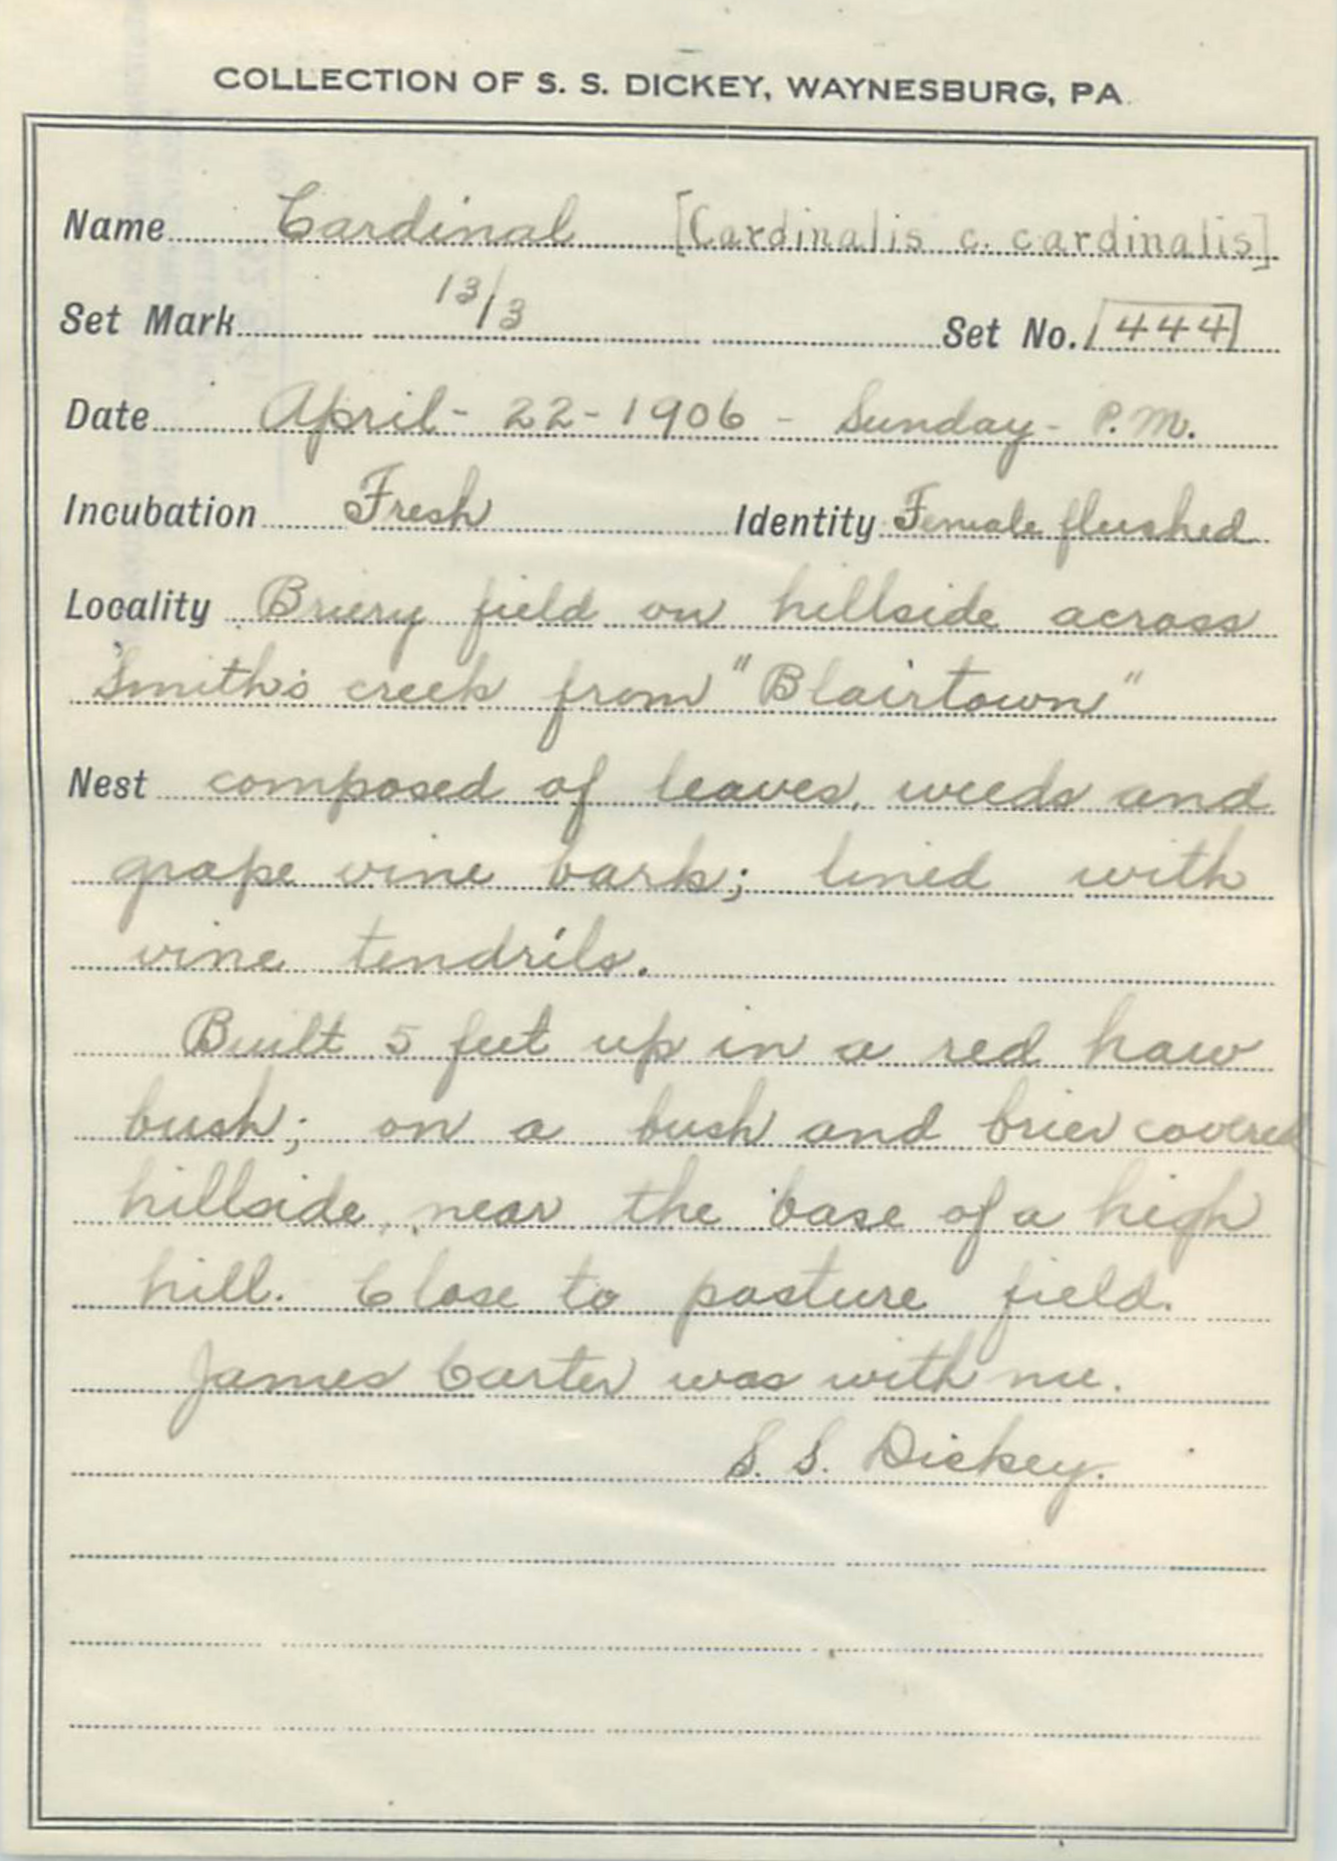 COLLECTION OF S. S. DICKEY, WAYNESBURG, PA.
Name Cardinal [Cardinalis c. cardinalis]
Set Mark 13/3 Set No. 444
Date April - 22 - 1906 - Sunday - P.M.
Incubation Fresh Identity Female flushed
Locality Briery field on hillside across
Smith's creek from "Blairtown"
Nest composed of leaves, weeds and
grape vine bark; lined with
vine tendrils.
Built 5 feet up in a red haw
bush; on a bush and brier covered
hillside, near the base of a high
hill. Close to pasture field.
James Carter was with me.
S. S. Dickey.